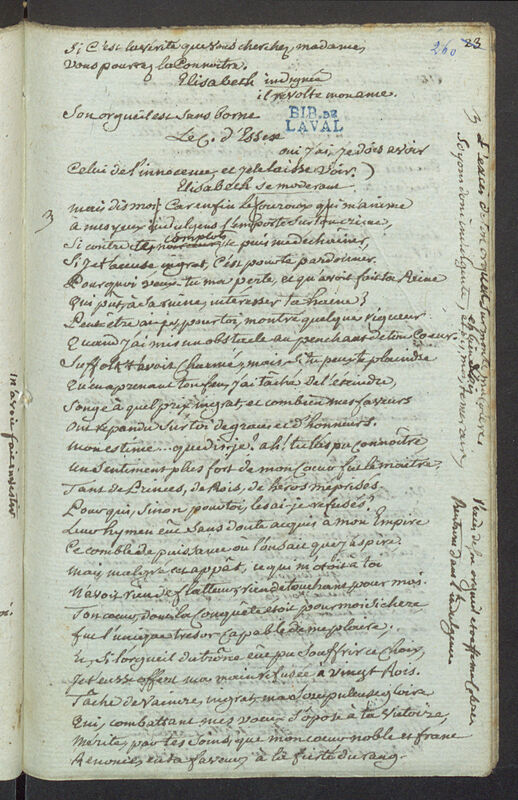 260 23
Si C'est la vérité que vous cherchez, madame,
Vous pourrez la Connoître.
Elisabeth indignée
il révolte mon ame.
Son orgueil est Sans borne
BIB. DE
LAVAL
Le C. d'Essex
oui j'ai, je dois avoir
Celui de l'innocence, et je le laisse voir.)
Elisabeth Se moderant.
mais dis moi Car enfin le Couroux qui m'anime
à mes yeux indulgens l'emporte Sur ton crime,
complots
Si contre tes noirceurs je puis me déchainer,
Si je t'accuse ingrat, C'est pour te pardonner.
Pourquoi veux-tu ma perte, et qu'avoit fait ta Reine
Qui put à sa ruine interesser ta haine?
Peut être ai-je, pour toi, montré quelque rigueur
Quand j'ai mis un obstacle au penchant de ton Coeur.
Suffolk t'avoit Charmé, mais Si tu peux te plaindre
Qu'en aprenant ton feu, j'ai tâché de l'éteindre,
Songe à quel prix ingrat, et combien mes faveurs
Ont répandu Sur toi de graces et d'honneurs.
mon estime... que dis-je? ah! tu l'as pu connoître
Un Sentiment plus fort de mon Coeur fut le maître,
Tant de Princes, de Rois, de héros méprisés.
Pour qui, Sinon pour toi, les ai-je refusés?
Leur hymen eût Sans doute acquis à mon Empire
Ce comble de puissance où l'on sait que j'aspire.
mais malgré cet appât, ce qui m'otoit à toi
N'avoit rien de flatteur, rien de touchant pour moi.
Ton coeur, dont la Conquête étoit pour moi Si chere
fut l'unique trésor Capable de me plaire,
Et Si l'orgueil du trône eut pu Souffrir ce Choix,
Je t'eusse offert ma main refusée à vingt Rois.
Tâche de vaincre, ingrat, ma Scrupuleuse gloire
Qui, combattant mes voeux S'opose à ta Victoire,
Mérite, par tes Soins, que mon coeur noble et franc
Renonce, en ta faveur, à la fierté du rang.
3
3
L'excès de Son orgueil Surmonte ma colere
Soyons donc indulgente,
Rentrons dans l'indulgence